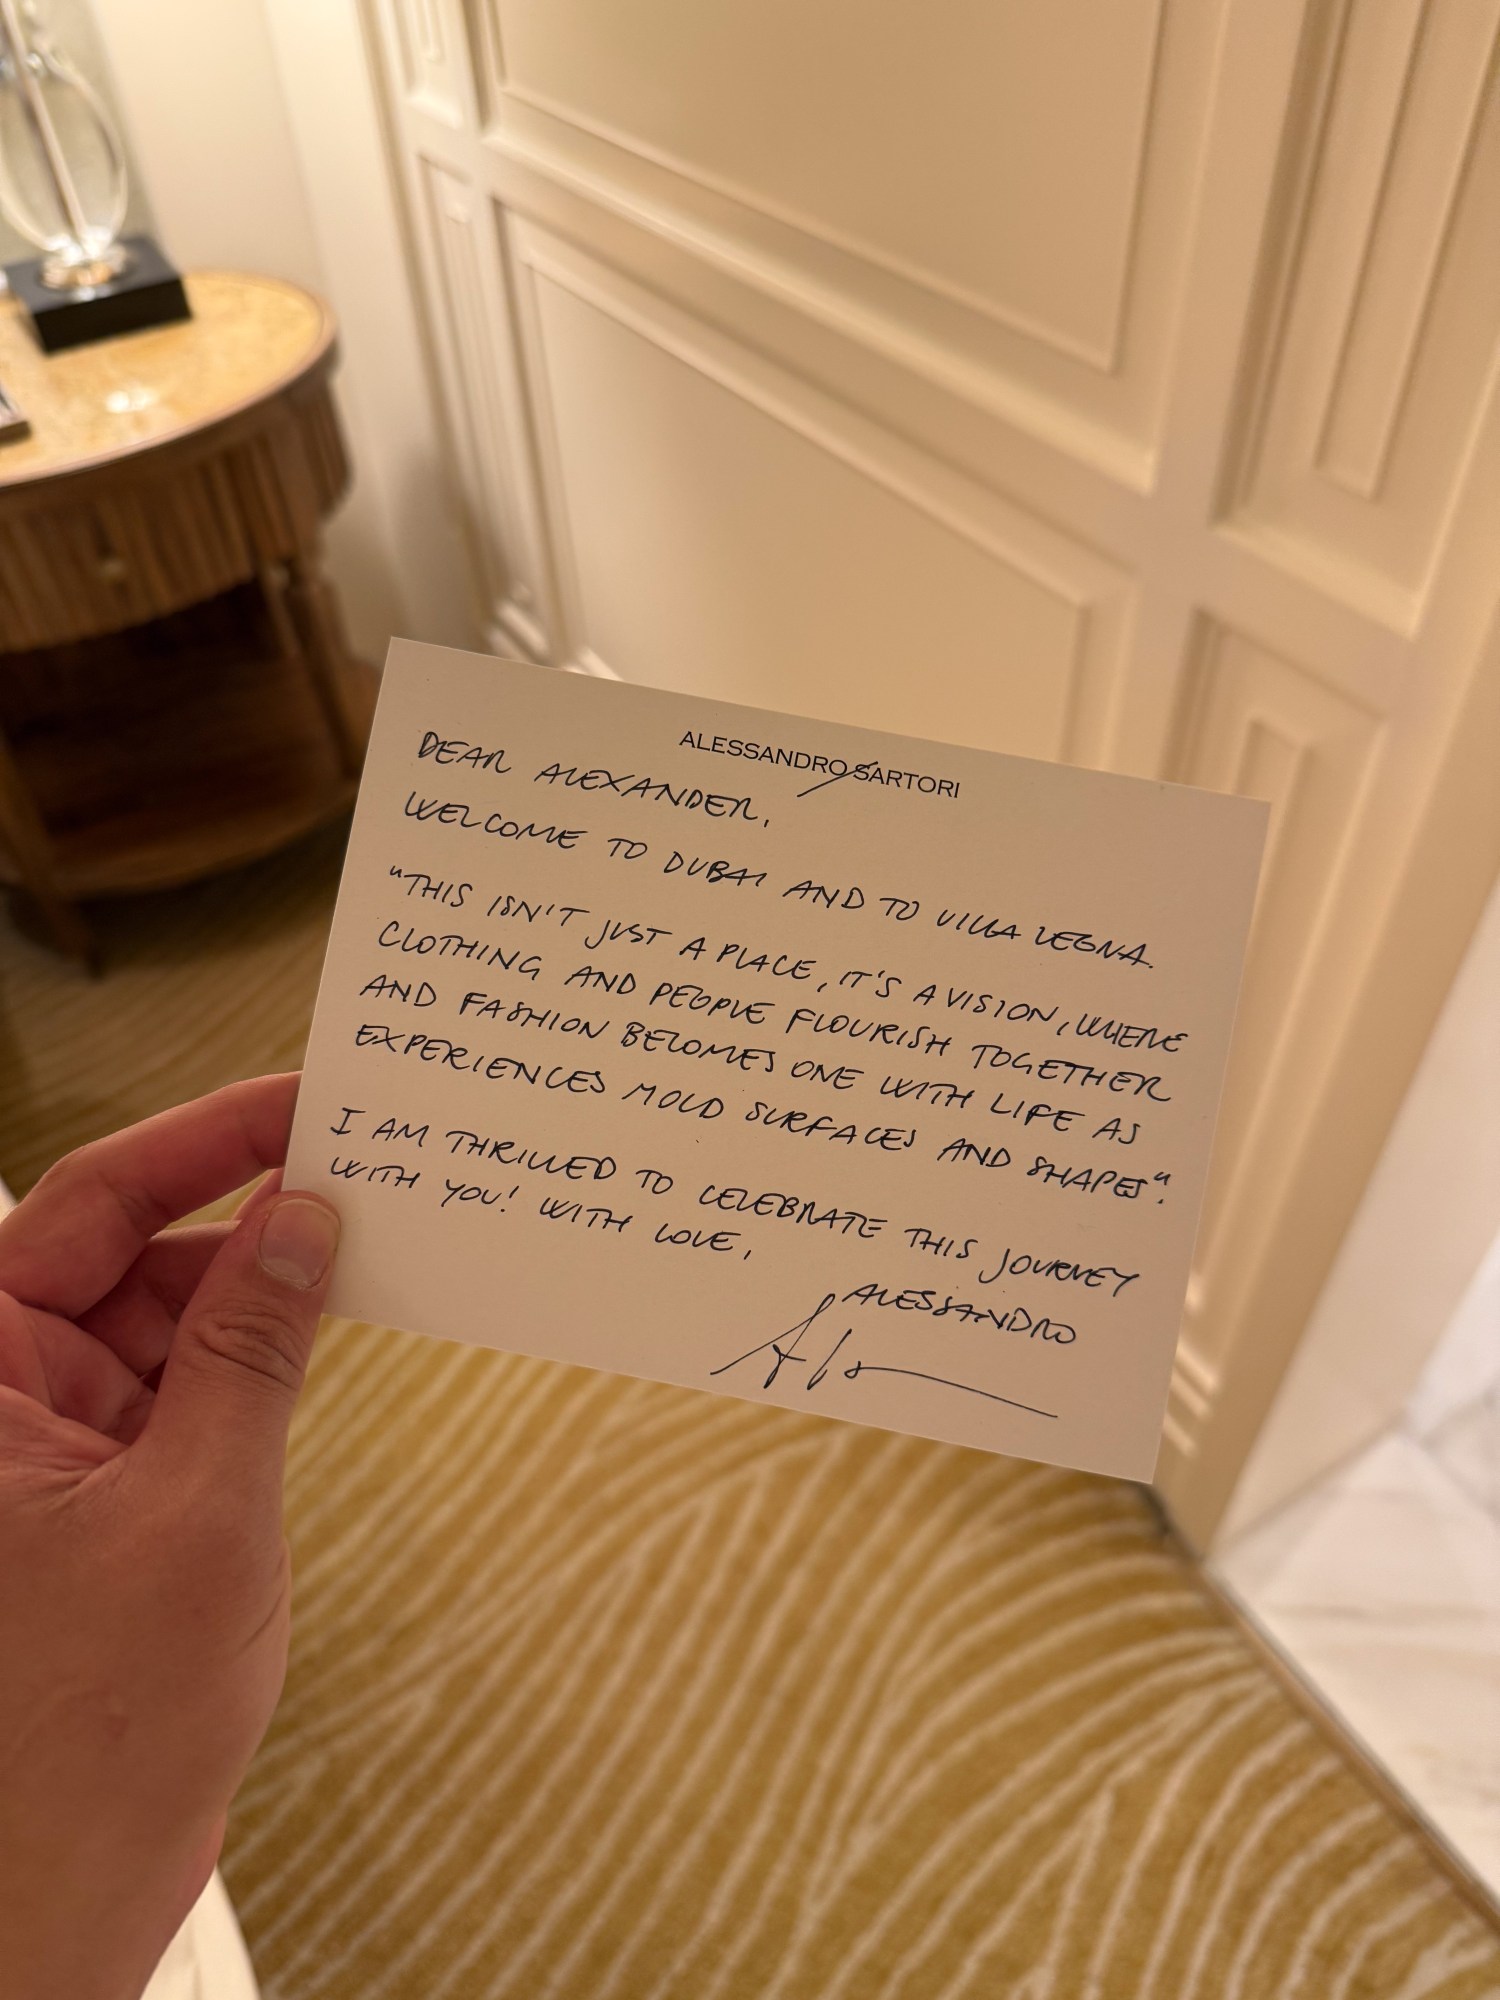 ALESSANDRO SARTORI
DEAR ALEXANDER,
WELCOME TO DUBAI AND TO VILLA ZEGNA.
"THIS ISN'T JUST A PLACE, IT'S A VISION, WHERE
CLOTHING AND PEOPLE FLOURISH TOGETHER
AND FASHION BECOMES ONE WITH LIFE AS
EXPERIENCES MOLD SURFACES AND SHAPES".
I AM THRILLED TO CELEBRATE THIS JOURNEY
WITH YOU! WITH LOVE,
ALESSANDRO